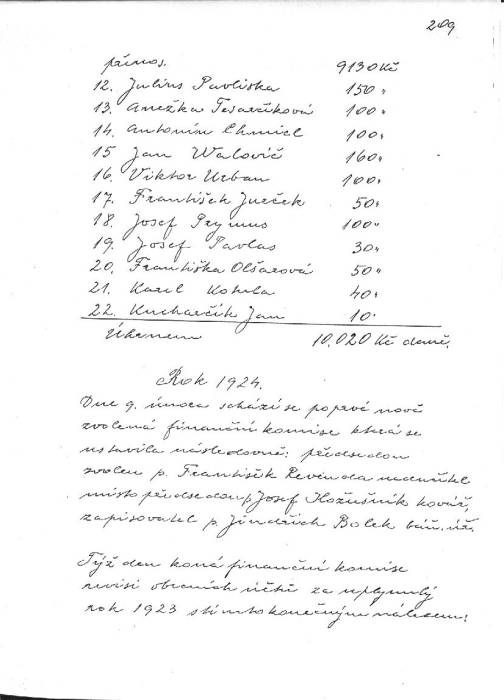 209
přínos. 9130 Kč
12. Julius Pavliska 150 "
13. Anežka Tesarčíková 100 "
14. Antonín Chmiel 100 "
15 Jan Walovič 160 "
16. Viktor Urban 100 "
17. František Jureček 50 "
18. Josef Prymus 100 "
19. Josef Pavlas 30 "
20. Františka Olšarová 50 "
21. Karel Kokela 40 "
22. Kucharčík Jan 10 "
Úhrnem 10.020 Kč daně.
Rok 1924.
Dne 9. února schází se poprvé nově
zvolená finanční komise která se
ustavila následovně: předsedou
zvolen p. František Revenda
místopředsedou p. Josef Kožušník kovář,
zapisovatel p. Jindřich Bolek báň. úř.
Týž den koná finanční komise
revisi obecních účtů za uplynulý
rok 1923 s tímto konečným nálezem: